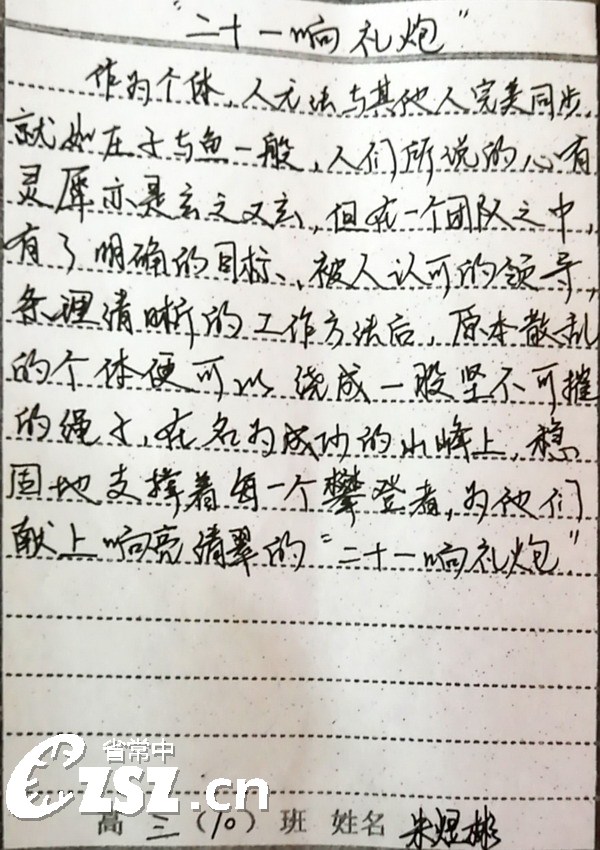 “二十一响礼炮”
作为个体，人无法与其他人完美同步，
就如庄子与鱼一般，人们所说的心有
灵犀亦是玄之又玄，但在一个团队之中，
有了明确的目标、被人认可的领导，
条理清晰的工作方法后，原本散乱
的个体便可以绕成一股坚不可摧
的绳子，在名为成功的山峰上，稳
固地支撑着每一个攀登者，为他们
献上响亮清翠的“二十一响礼炮”
省常中
eZSZ.cn
高三（10）班 姓名 朱煜彬